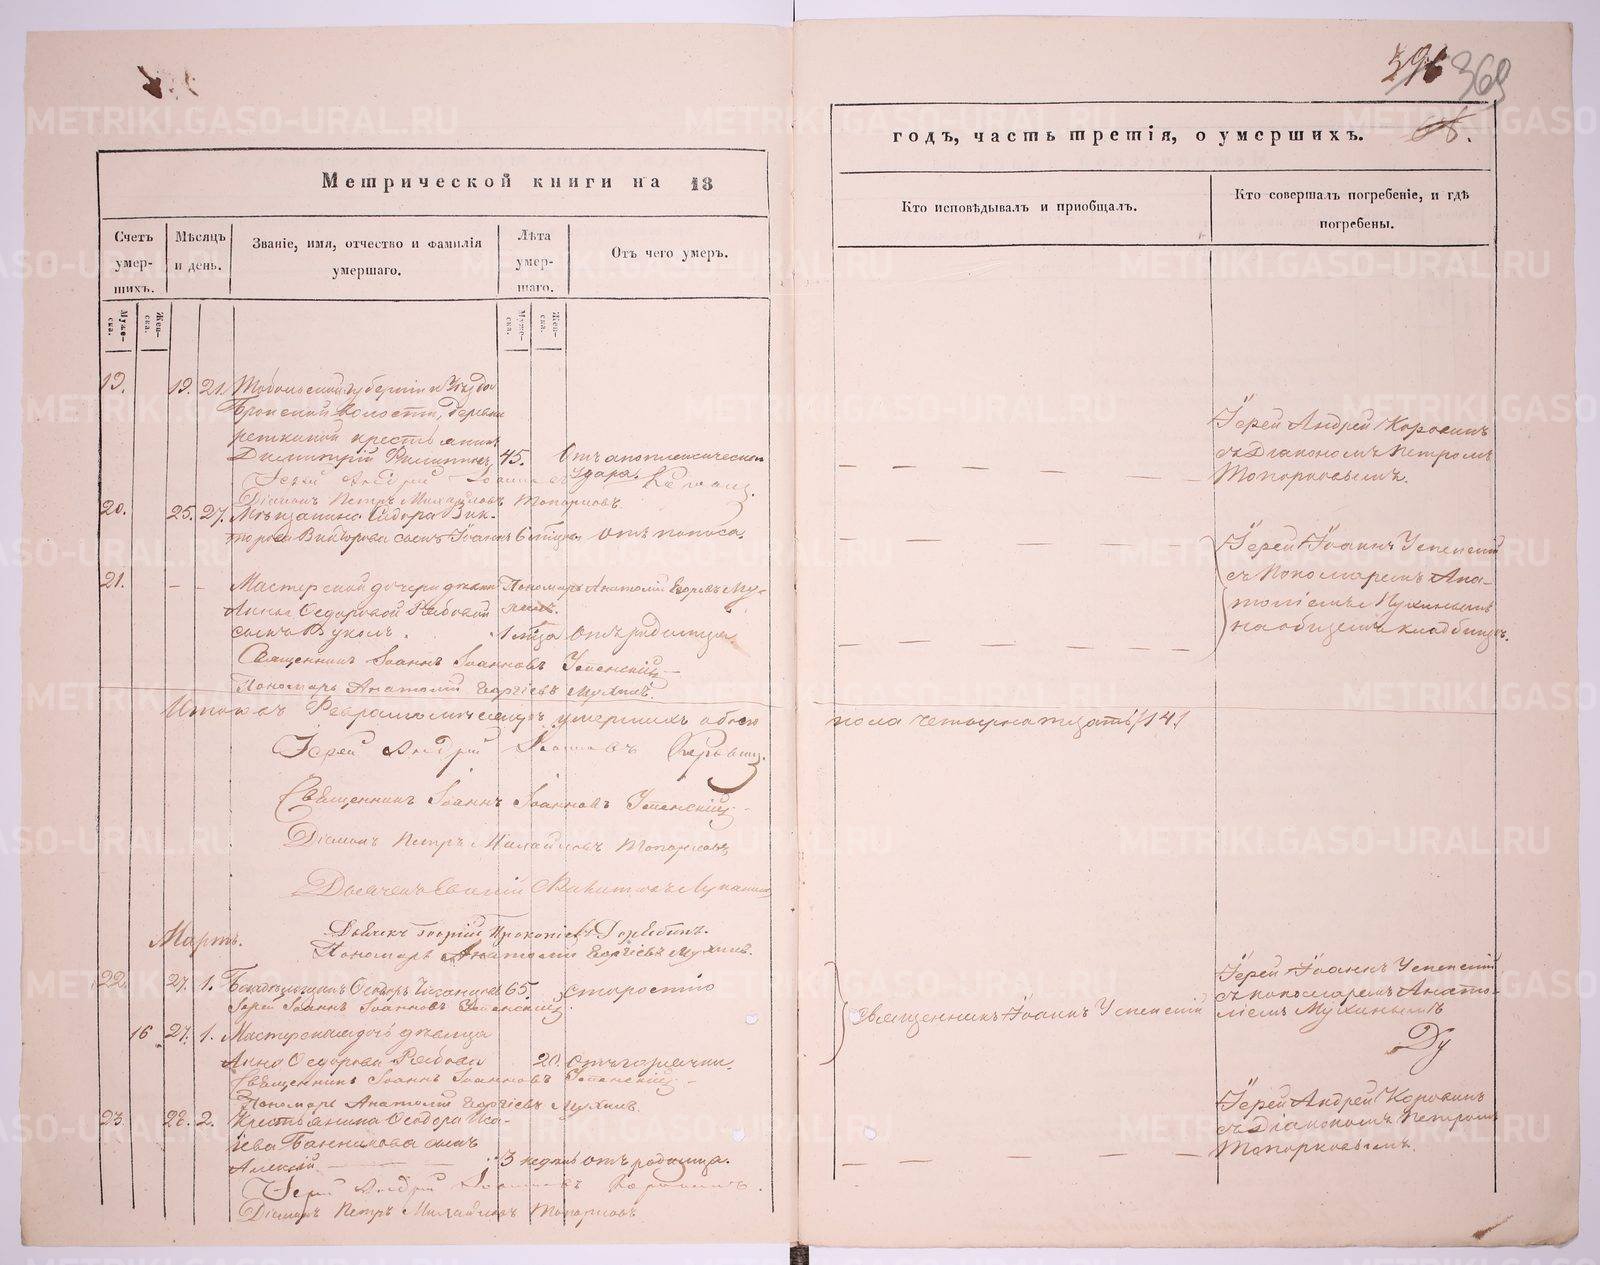 396 369
Метрической книги на 18
годъ, часть третія, о умершихъ.
Счетъ умер-
шихъ.
Мѣсяцъ
и день.
Званіе, имя, отчество и фамилія
умершаго.
Лѣта
умер-
шаго.
Отъ чего умеръ.
Кто исповѣдывалъ и пріобщалъ.
Кто совершалъ погребеніе, и гдѣ
погребены.
Муже-
ска.
Жен-
ска.
Муже-
ска.
Жен-
ска.
19. 19. 21. Тобольской губерніи и уѣзда
волости, деревни
крестьянинъ
Димитрій 45. Отъ апоплексическаго
удара.
Іерей Андрей Іоанновъ Коровинъ.
Іерей Андрей Коровинъ
съ Діакономъ Петромъ
Топорковымъ.
Діаконъ Петръ Михайловъ Топорковъ.
20. 25. 27. Мѣщанина Сидора Вик-
торова сынъ Іоаннъ 6 отъ поноса.
21. Мастерской дочери дѣвки
Анны Ѳедоровой Рябовой
сынъ Вуколъ. 1 отъ родимца
Пономарь Анатолій Егоровъ Му-
хинъ.
Іерей Іоаннъ Успенскій
съ Пономаремъ Ана-
толіемъ Мухинымъ
на общемъ кладбищѣ.
Священникъ Іоаннъ Іоанновъ Успенскій
Пономарь Анатолій Георгіевъ Мухинъ.
Итого въ Февралѣ мѣсяцѣ умершихъ обоего
пола четырнадцать /14/
Іерей Андрей Іоанновъ Коровинъ.
Священникъ Іоаннъ Іоанновъ Успенскій
Діаконъ Петръ Михайловъ Топорковъ
Дьячекъ Георгій Прокопіевъ
Пономарь Анатолій Георгіевъ Мухинъ.
Мартъ.
22. 27. 1. Ѳедоръ 65. старостію
Іерей Іоаннъ Іоанновъ Успенскій
Священникъ Іоаннъ Успенскій
Іерей Іоаннъ Успенскій
съ пономаремъ Анато-
ліемъ Мухинымъ
16 27. 1. Мастерская дочь дѣвица
Анна Ѳедорова Рябова 20. отъ горячки.
Священникъ Іоаннъ Іоанновъ Успенскій
Пономарь Анатолій Георгіевъ Мухинъ.
23. 28. 2. Крестьянина Ѳеодора Иса-
іева Банникова сынъ
Алексій 3 недѣль отъ родимца.
Іерей Андрей Коровинъ
съ Діакономъ Петромъ
Топорковымъ.
Іерей Андрей Іоанновъ Коровинъ.
Діаконъ Петръ Михайловъ Топорковъ
METRIKI.GASO-URAL.RU